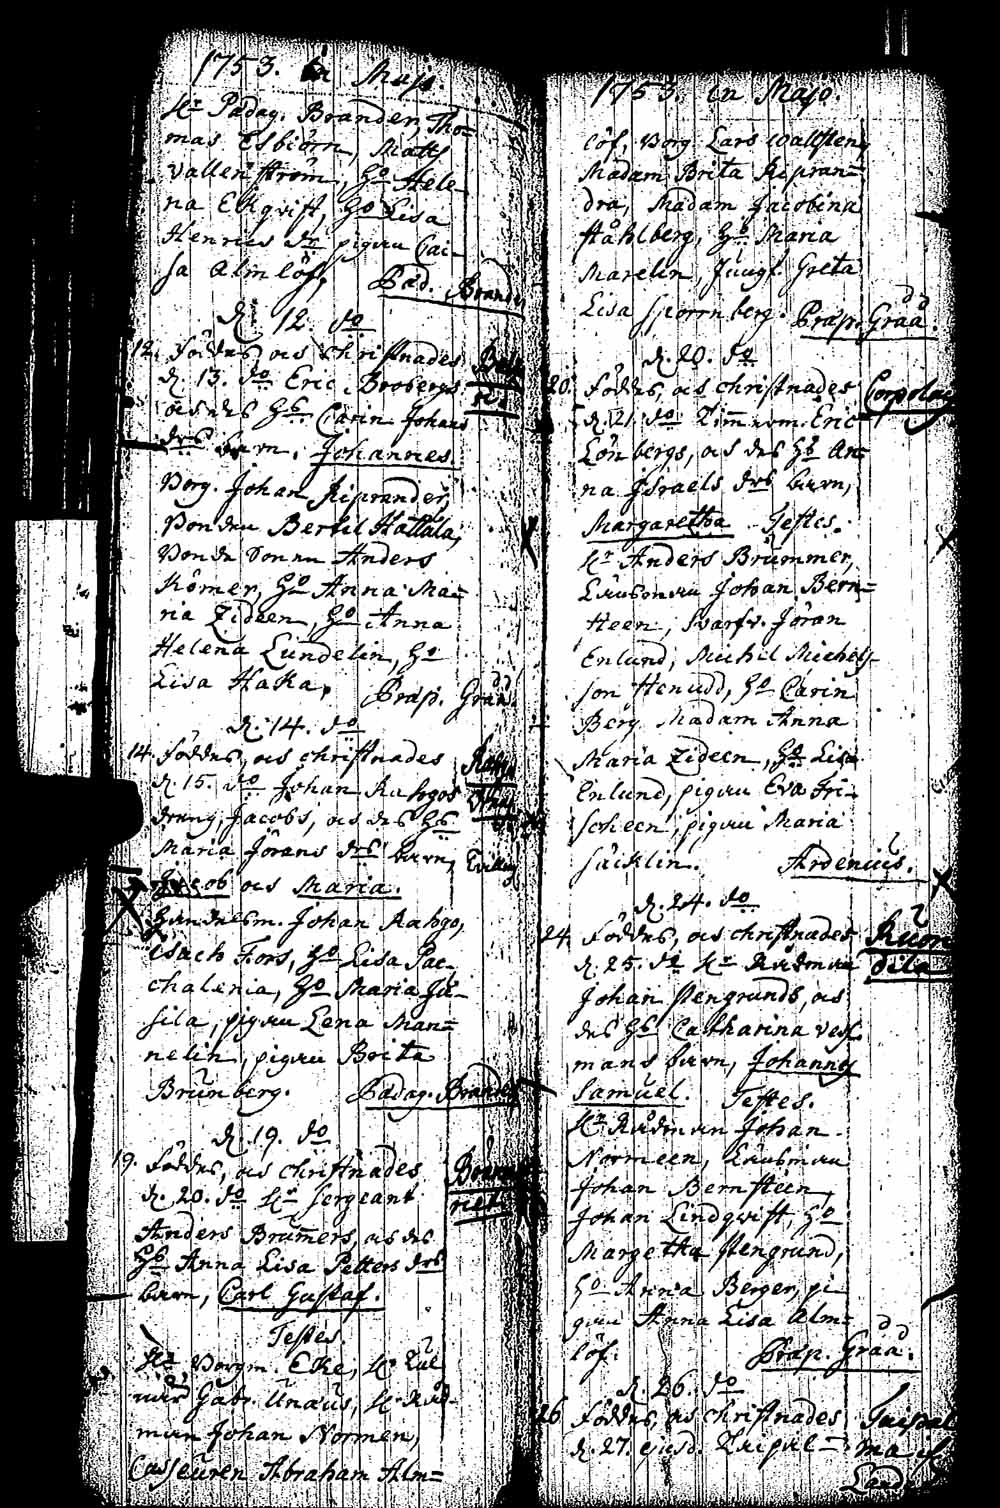 1753. in Majo.
Hr Pædag. Brander, Tho=
mas Esbiörn, Matts
Vallenström, Ho Hele=
na Ekqvist, Ho Lisa
Henrics dr pigan Cai=
sa Almlöf,
Pæd. Brander
D. 12. do
12. Föddes, ock christnades
d. 13. do Eric Brobergs
ock des Hs Carin Johans
drs barn, Johannes.
Borg. Johan Riprander,
Bonden Bertil Hattala,
Bonde Sonen Anders
Römer, Ho Anna Ma=
ria Zideen, Ho Anna
Helena Lundelin, Ho
Lisa Haka,
Præp. Gråå.
D. 14. do
14. Föddes, ock christnades
d. 15. do Johan Rahgos
dräng, Jacobs, ock des Hs
Maria Jörans drs barn,
Jacob ock Maria.
Handelsm. Johan Rahgo,
Isach Fors, Ho Lisa Pac=
chalenia, Ho Maria Ju=
sila, pigan Lena Man=
nelin, pigan Brita
Brunberg.
Pædag. Brander
D. 19. do
19. Föddes, ock christnades
d. 20. do Hr Sergeant
Anders Brumers, ock des
Hs Anna Lisa Petters drs
barn, Carl Gustaf.
Testes
Hr Borgm. Eke, Hr Tul
när Gabr. Unæus, Hr Råd=
man Johan Normen,
Casseuren Abraham Alm=
1753. in Majo.
löf, Borg. Lars Wallsten,
Madam Brita Ripran=
dra, Madam Jacobina
Ståhlberg, Ho Maria
Marelin, Jungf. Greta
Lisa Sporrnberg.
Præp. Gråå.
D. 20. do
20. Föddes, ock christnades
d. 21. do Timerm. Eric
Lönbergs, ock des Hs An=
na Israels drs barn,
Margaretha Testes.
Hr Anders Brummer,
Länsman Johan Bern=
steen, Svarfv. Jöran
Enlund, Michil Michels=
son Henudd, Ho Carin
Berg. Madam Anna
Maria Zideen, Ho Lisa
Enlund, pigan Eva Fri=
scheen, pigan Maria
Säcklin.
Ardenius.
D. 24. do
24. Föddes, ock christnades
d. 25. do Hr Rådman
Johan Stengrunds, ock
des Hs Catharina Vess=
mans barn, Johannes
Samuel. Testes.
Hr Rådman Johan
Normeen, Länsman
Johan Bernsteen,
Johan Lindqvist, Ho
Margetha Stengrund,
Ho Anna Berger, pi=
gan Anna Lisa Alm=
löf.
Præp. Gråå.
D. 26. do
26. Föddes, ock christnades
d. 27. ejusd.